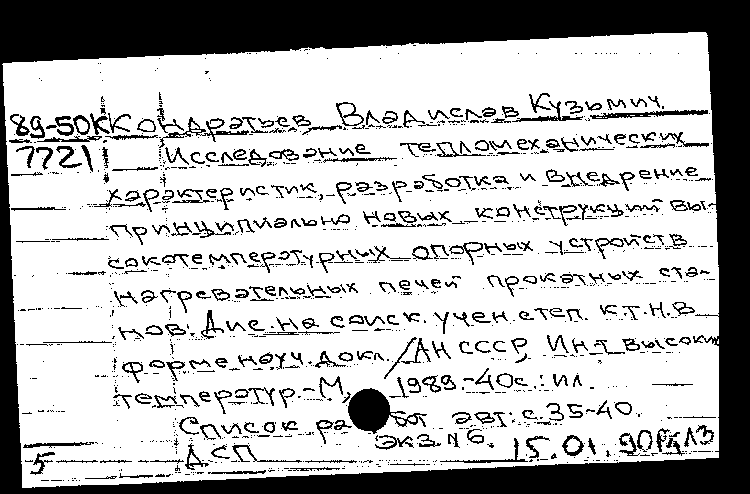 89-50К Кондратьев Владислав Кузьмич.
7721 Исследование тепломеханических
характеристик, разработка и внедрение
принципиально новых конструкций вы-
сокотемпературных опорных устройств
нагревательных печей прокатных ста-
нов: Дис. на соиск. учен. степ. к.т.н. в
форме науч. докл. / АН СССР, Ин-т высоких
температур. - М., 1989. - 40с.: ил.
Список работ авт: с. 35-40.
ДСП экз. N6.
5 15.01.90